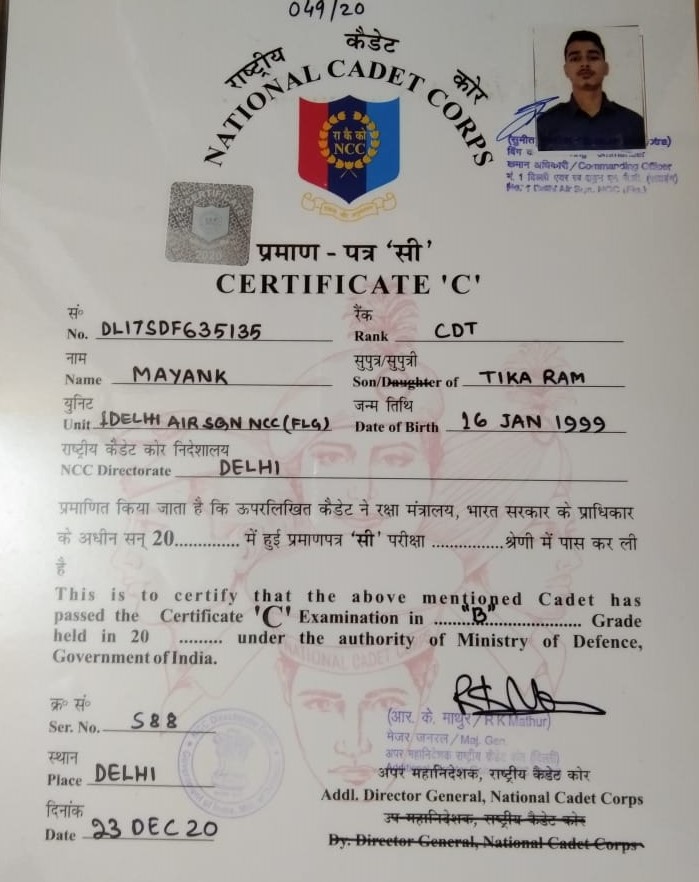 049/20
राष्ट्रीय कैडेट कोर
NATIONAL CADET CORPS
रा कै को
NCC
(सुनीत
कमान अधिकारी / Commanding Officer
प्रमाण - पत्र ‘सी’
CERTIFICATE 'C'
सं॰
No. DL17SDF635135
रैंक
Rank CDT
नाम
Name MAYANK
सुपुत्र/सुपुत्री
Son/Daughter of TIKA RAM
युनिट
Unit 1 DELHI AIR SQN NCC (FLG)
जन्म तिथि
Date of Birth 16 JAN 1999
राष्ट्रीय कैडेट कोर निदेशालय
NCC Directorate DELHI
प्रमाणित किया जाता है कि ऊपरलिखित कैडेट ने रक्षा मंत्रालय, भारत सरकार के प्राधिकार
के अधीन सन् 20............. में हुई प्रमाणपत्र ‘सी’ परीक्षा ..............श्रेणी में पास कर ली
है
This is to certify that the above mentioned Cadet has
passed the Certificate 'C' Examination in ......"B"...................... Grade
held in 20 ......... under the authority of Ministry of Defence,
Government of India.
क्र॰ सं॰
Ser. No. 588
स्थान
Place DELHI
दिनांक
Date 23 DEC 20
(आर. के. माथुर / R K Mathur)
मेजर जनरल / Maj. Gen.
अपर महानिदेशक, राष्ट्रीय कैडेट कोर
Addl. Director General, National Cadet Corps
उप-महानिदेशक, राष्ट्रीय कैडेट कोर
Dy. Director General, National Cadet Corps